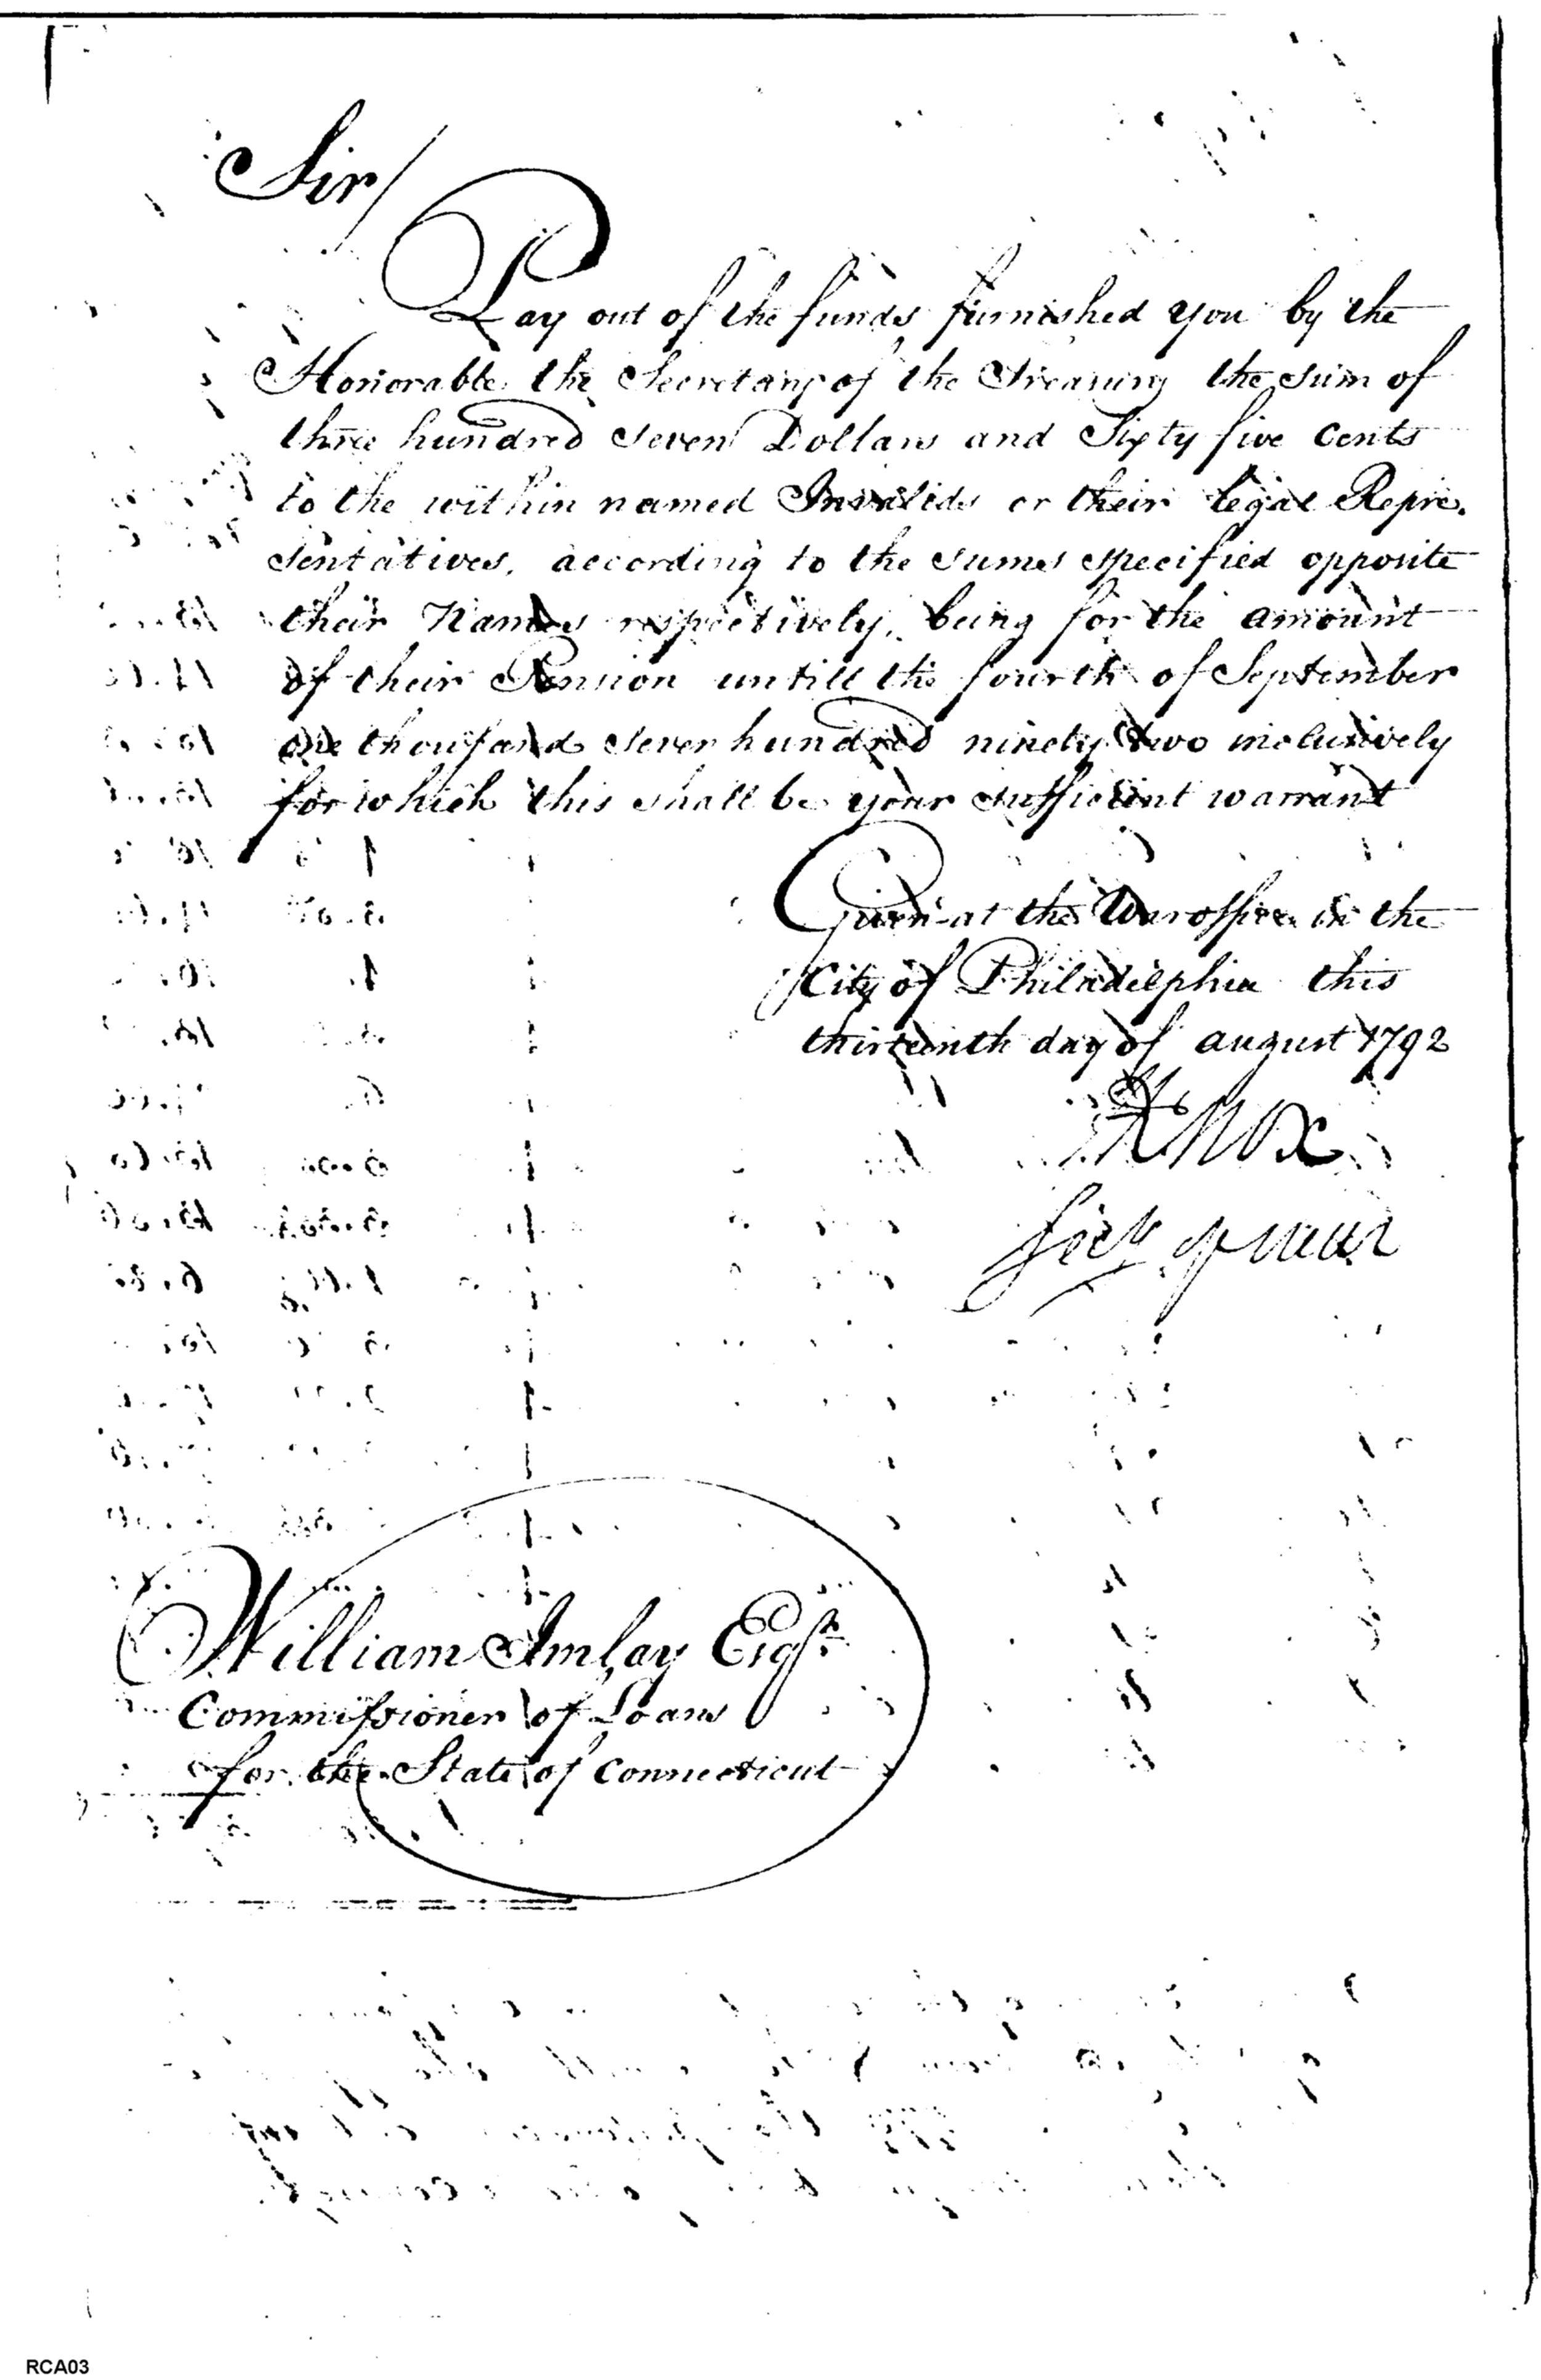 Sir/
Pay out of the funds furnished you by the
Honorable the Secretary of the Treasury the sum of
three hundred seven Dollars and Sixty five Cents
to the within named Invalids or their legal Repre.
sentatives, according to the sums specified opposite
their Names respectively, being for the amount
of their Pension untill the fourth of September
one thousand seven hundred ninety two inclusively
for which this shall be your sufficient warrant
Given at the War office in the
City of Philadelphia this
thirteenth day of august 1792
H Knox
Secy of War
William Imlay Esqr.
Commissioner of Loans
for the State of Connecticut
RCA03